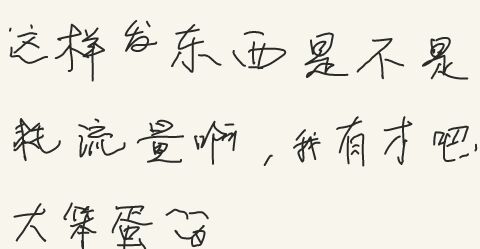 这样发东西是不是
耗流量啊，我有才吧，
大笨蛋